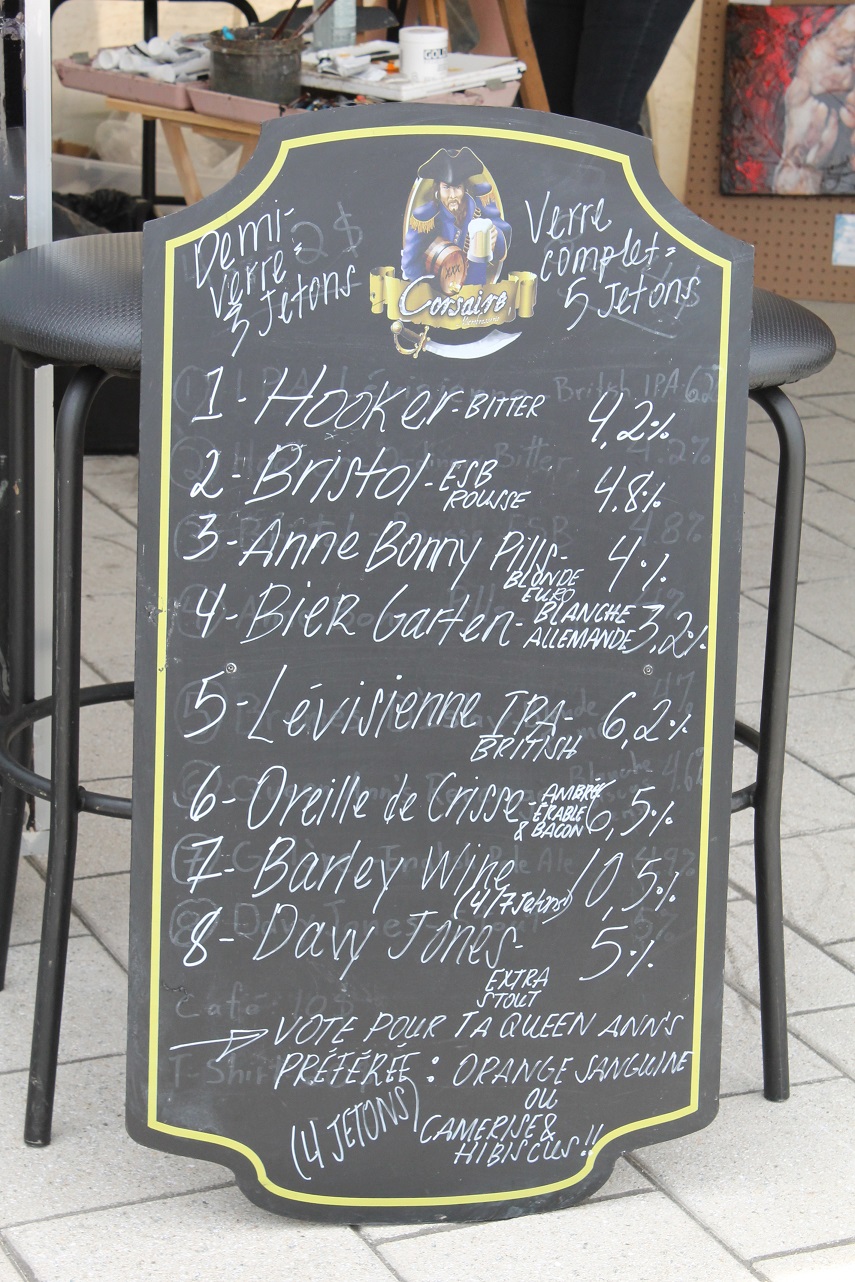 GOLD
Demi-
verre:
3 Jetons
Verre
complet:
5 Jetons
Corsaire
1 - Hooker - BITTER 4,2%
2 - Bristol - ESB ROUSSE 4.8%
3 - Anne Bonny Pills - BLONDE EURO 4%
4 - Bier Garten - BLANCHE ALLEMANDE 3,2%
5 - Lévisienne IPA - BRITISH 6,2%
6 - Oreille de Crisse - AMBRÉE ÉRABLE & BACON 6,5%
7 - Barley Wine (4/7 Jetons) 10,5%
8 - Davy Jones - EXTRA STOUT 5%
→ VOTE POUR TA QUEEN ANN'S
PRÉFÉRÉE : ORANGE SANGUINE
OU
(4 JETONS) CAMERISE &
HIBISCUS!!